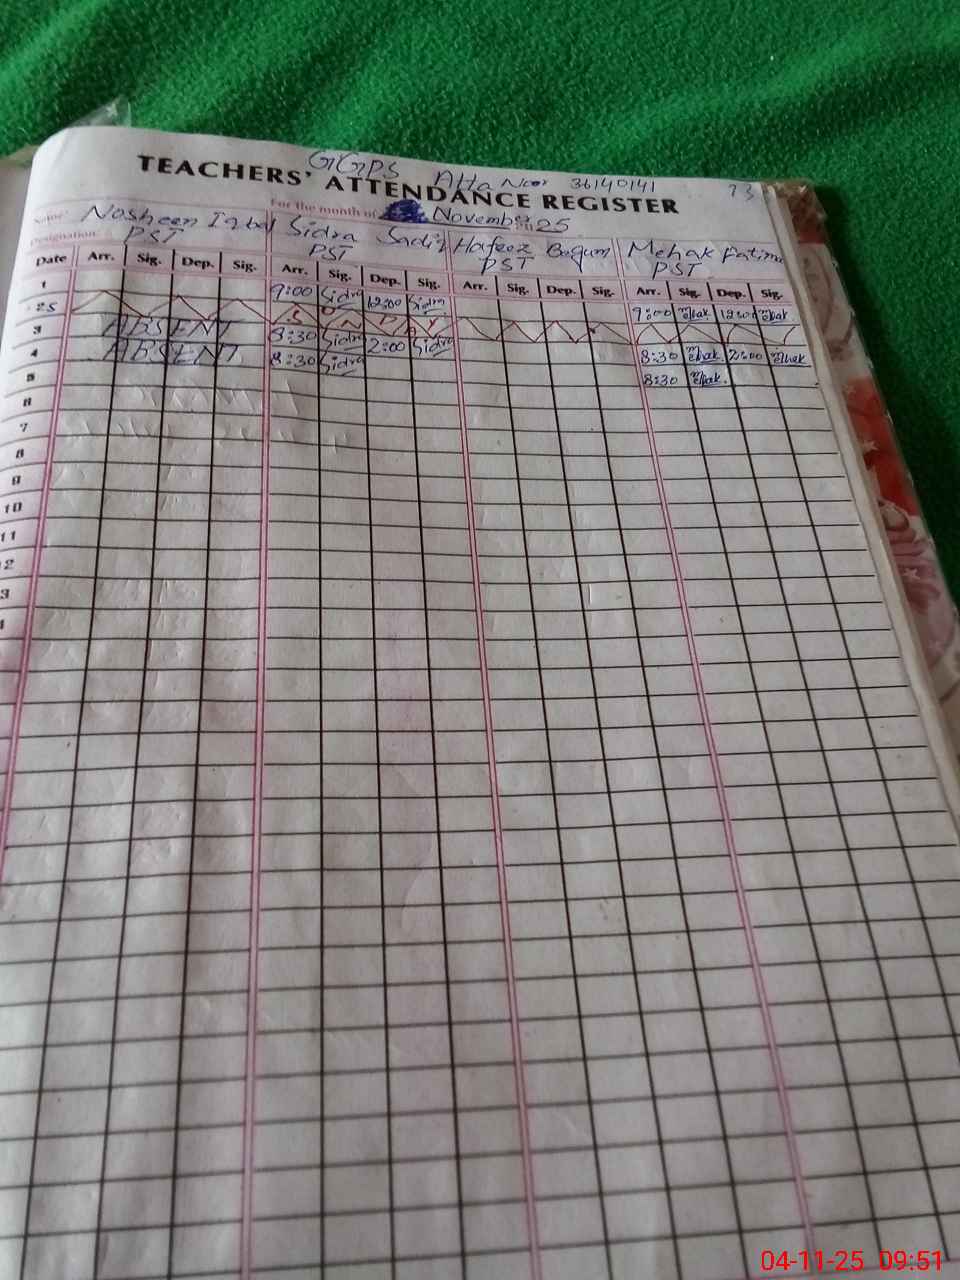 GGPS Atta Noor 36140141 73
TEACHERS' ATTENDANCE REGISTER
For the month of November 2025
Name: Nosheen Iqbal Sidra Sadiq Hafeez Begum Mehak Fatima
Designation: PST PST PST PST
Date Arr. Sig. Dep. Sig. Arr. Sig. Dep. Sig. Arr. Sig. Dep. Sig. Arr. Sig. Dep. Sig.
1 9:00 Sidra 12:00 Sidra 9:00 Mehak 12:00 Mehak
SUNDAY
3 ABSENT 8:30 Sidra 2:00 Sidra 8:30 Mehak 2:00 Mehak
4 ABSENT 8:30 Sidra 8:30 Mehak
5
6
7
8
9
10
11
12
3
04-11-25 09:51